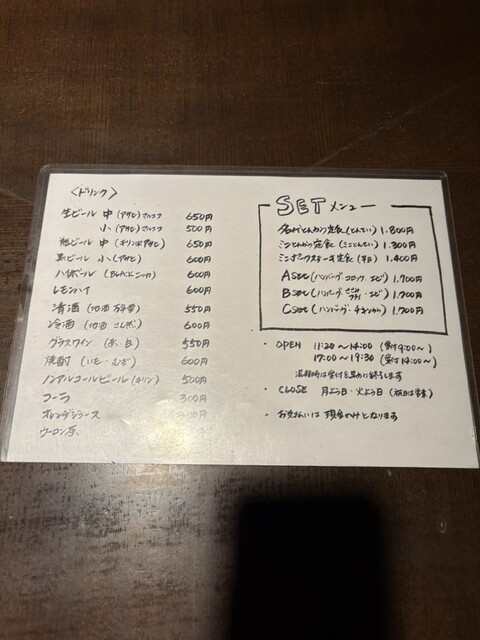 <ドリンク>
生ビール 中 (アサヒ) 650円
小 (アサヒ) 500円
瓶ビール 中 (キリン or アサヒ) 650円
黒ビール 小 (アサヒ) 600円
ハイボール (BLACKニッカ) 600円
レモンハイ 600円
清酒 550円
冷酒 600円
グラスワイン (赤・白) 550円
焼酎 (いも・むぎ) 600円
ノンアルコールビール (キリン) 500円
コーラ 300円
オレンジジュース 300円
ウーロン茶
SET メニュー
名代とんかつ定食 (とんてい) 1.800円
ミニとんかつ定食 (ミニとんてい) 1.300円
ミニポークステーキ定食 1.400円
A set (ハンバーグ・コロッケ・エビ) 1.700円
B set (ハンバーグ・ささみフライ・エビ) 1.700円
C set (ハンバーグ・チキンカツ) 1.700円
・ OPEN 11:20〜14:00 (受付9:00〜)
17:00〜19:30 (受付14:00〜)
混雑時は受付を早めに終了します
・ CLOSE 月よう日・火よう日 (祝日は営業)
・ お支払いは 現金のみとなります